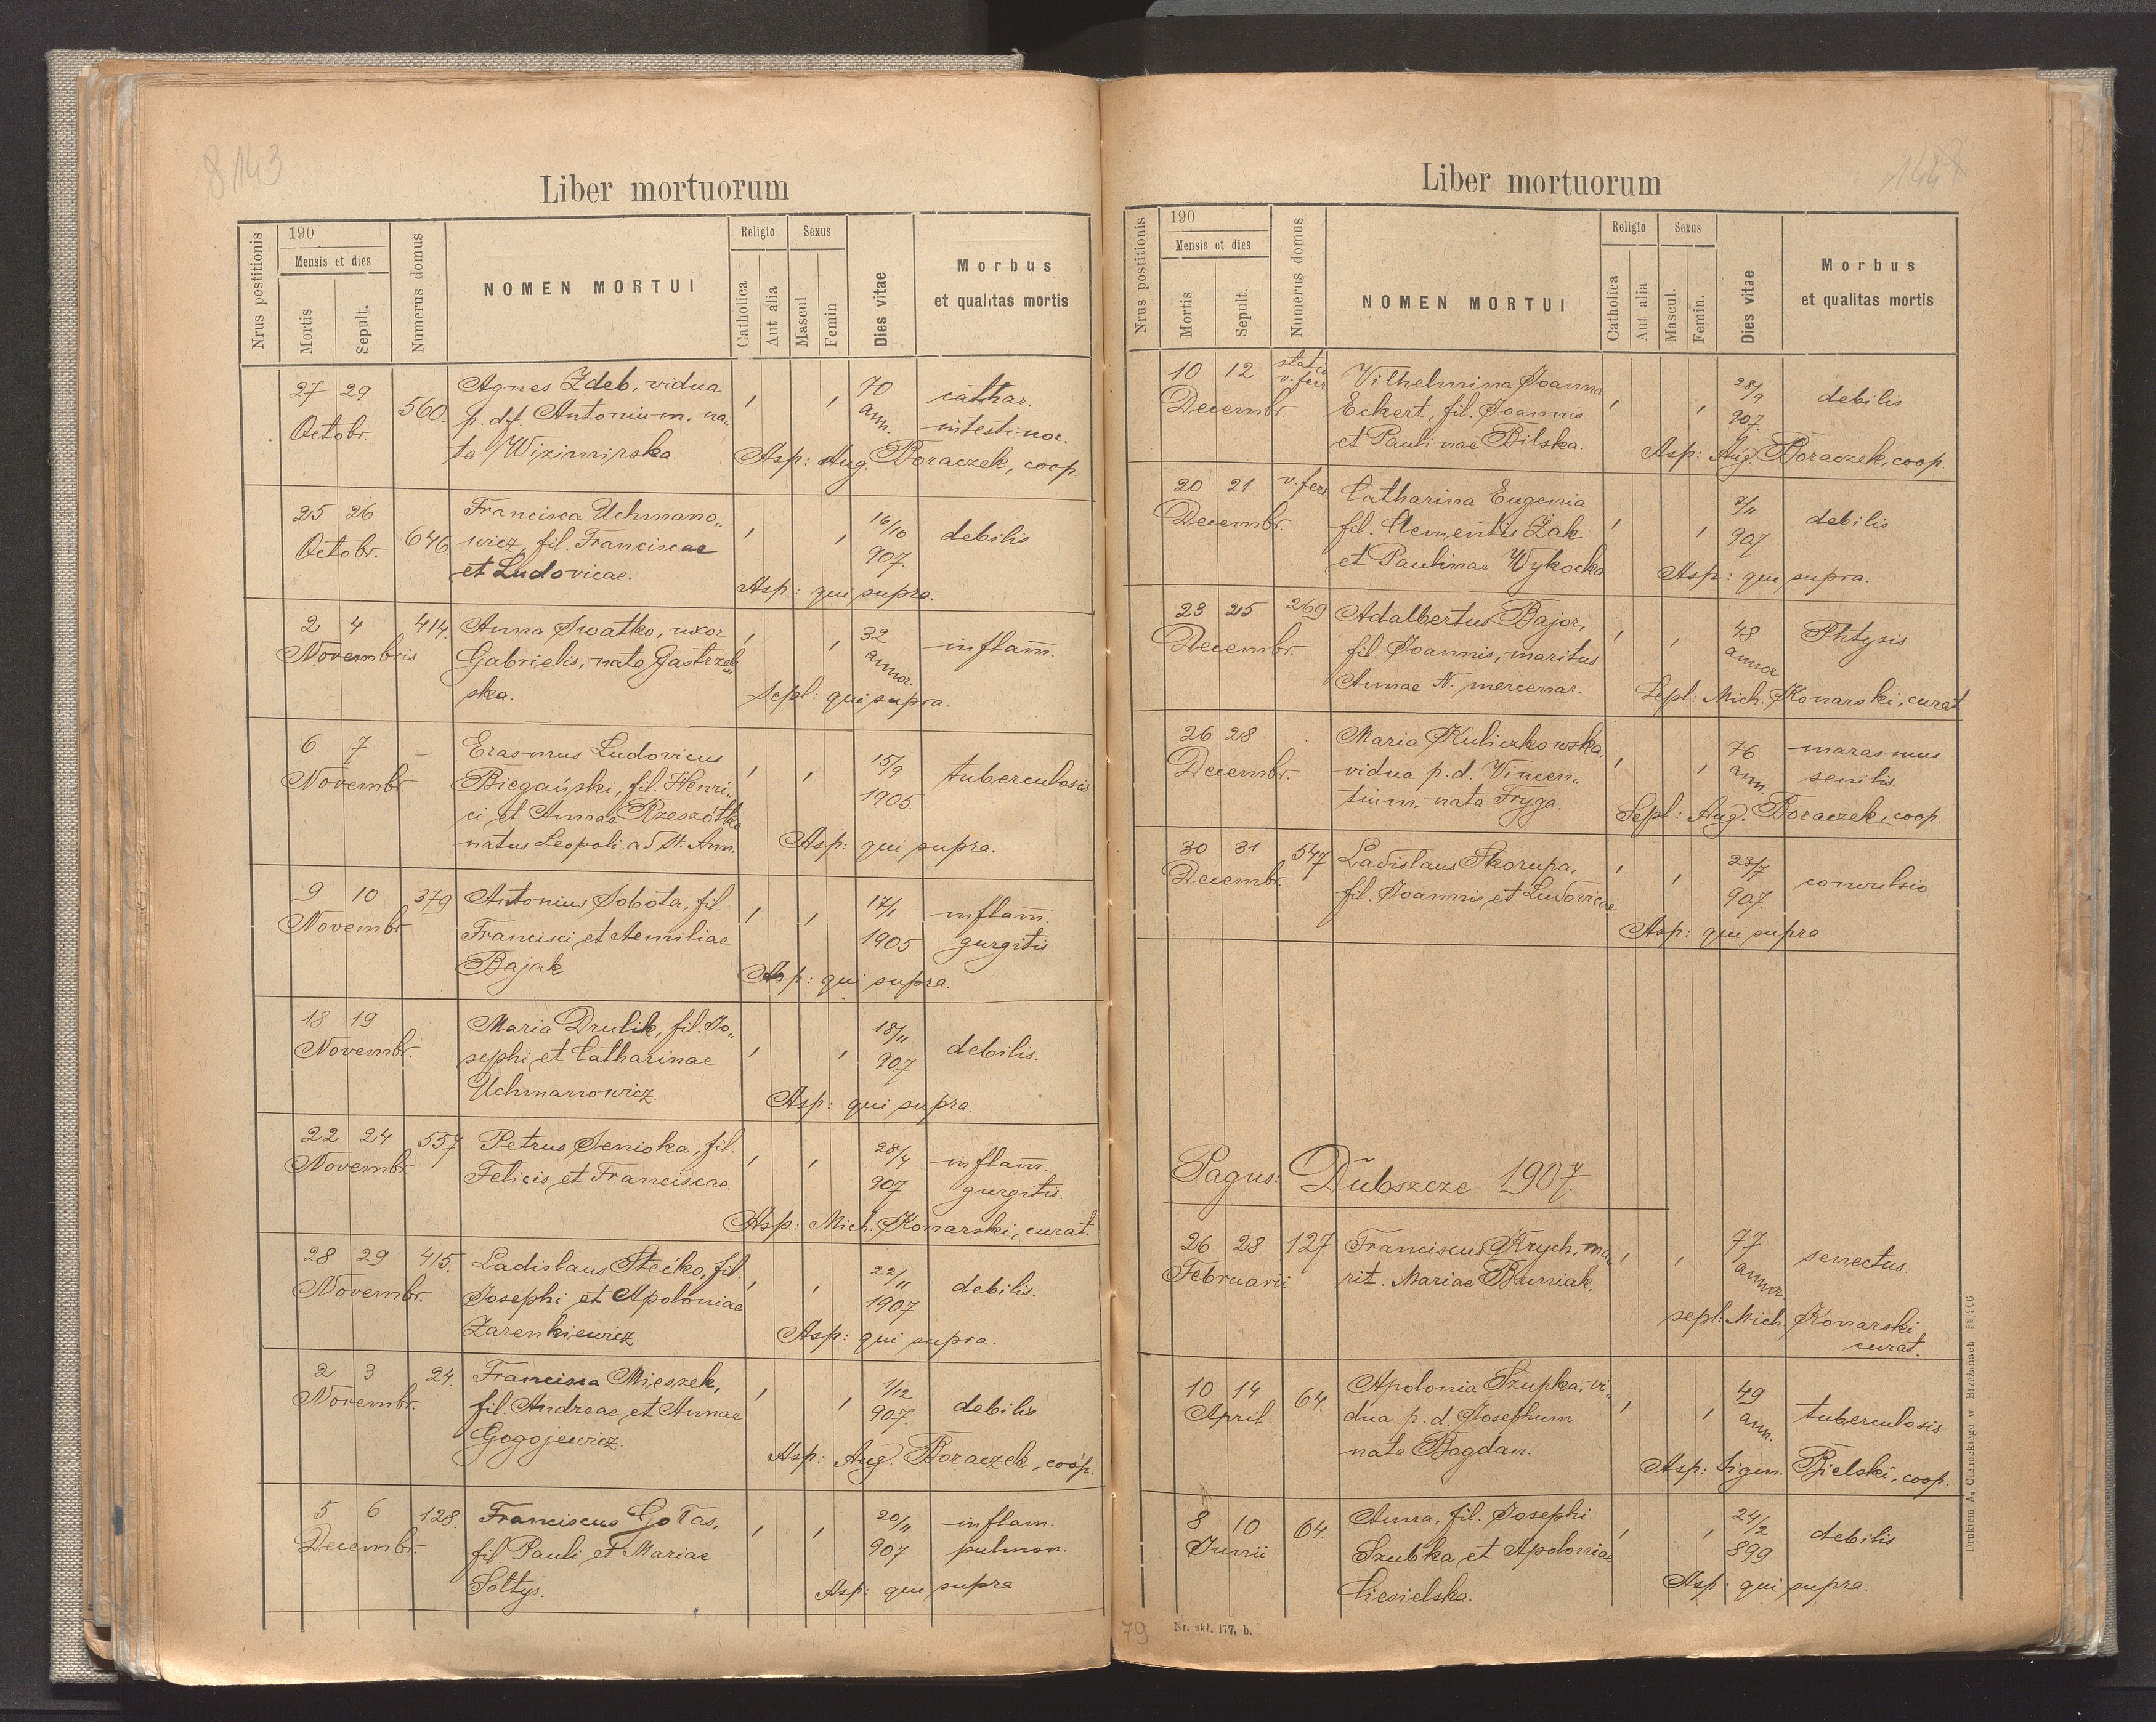 8143
Liber mortuorum
Nrus postitionis
190
Mensis et dies
Mortis
Sepult.
Numerus domus
NOMEN MORTUI
Religio
Catholica
Aut alia
Sexus
Mascul
Femin
Dies vitae
Morbus
et qualitas mortis
27 29 560. Agnes Zdeb, vidua 70 cathar.
Octobr. p. df. Antonium, na„ ann. intestinor.
ta Wizimirska. Asp: Aug. Boraczek, coop.
25 26 Francisca Uchmano„ 16/10 debilis
Octobr. 646 wicz, fil. Franciscae 907.
et Ludovicae. Asp: qui supra.
2 4 414. Anna Swatko, uxor 32 inflam̄.
Novembris Gabrielis, nata Gastrzeb„ annor.
ska. Sepl: qui supra.
6 7 – Erasmus Ludovicus 15/9 tuberculosis
Novembr. Biegański, fil. Henri„ 1905.
ci et Annae Rzeszótko
natus Leopoli ad St. Ann. Asp: qui supra.
9 10 379 Antonius Sobota, fil. 17/1 inflam̄.
Novembr. Francisci et Aemiliae 1905. gurgitis
Bajak Asp: qui supra.
18 19 Maria Drulik, fil. Jo„ 18/11 debilis.
Novembr. sephi et Catharinae 907
Uchmanowicz. Asp: qui supra.
22 24 557 Petrus Senioka, fil. 28/4 inflam̄.
Novembr. Felicis et Franciscae. 907. gurgitis.
Asp: Mich. Konarski, curat.
28 29 415. Ladislaus Stećko, fil. 22/11 debilis.
Novembr. Josephi et Apoloniae 1907
Zarenkiewicz. Asp: qui supra.
2 3 24. Francisca Mieszek, 1/12 debilis
Novembr. fil. Andreae et Annae 907.
Gogojewicz. Asp: Aug. Boraczek, coop.
5 6 128. Franciscus Gołas, 20/11 inflam.
Decembr. fil Pauli et Mariae 907 pulmon.
Sołtys. Asp: qui supra
Liber mortuorum
Nrus postitionis
190
Mensis et dies
Mortis
Sepult.
Numerus domus
NOMEN MORTUI
Religio
Catholica
Aut alia
Sexus
Mascul.
Femin.
Dies vitae
Morbus
et qualitas mortis
10 12 statio v. ferr Vilhelmina Joanna 28/9 debilis
Decembr. Eckert, fil. Joannis 907.
et Paulinae Bilska. Asp: Aug. Boraczek, coop.
20 21 v. ferr. Catharina Eugenia 2/11 debilis
Decembr. fil. Clementis Żak 907
et Paulinae Wykocka Asp: qui supra.
23 25 269 Adalbertus Bajor, 48 Phtysis
Decembr. fil. Joannis, maritus annor
Annae N. mercenar. Sepl: Mich. Konarski, curat
26 28 Maria Kuliczkowska, 76 marasmus
Decembr. vidua p. d. Vincen„ ann. senilis.
tium, nata Fryga. Sepl: Aug. Boraczek, coop.
30 31 547 Ladislaus Skorupa, 23/7 convulsio
Decembr. fil. Joannis et Ludovicae 907.
Asp: qui supra.
Pagus: Dubszcze 1907.
26 28 127 Franciscus Krych, ma„ 77 senectus.
Februarii rit. Mariae Buniak. annor
sepl. Mich Konarski
curat.
10 14 64. Apolonia Szupka, vi„ 49 tuberculosis
April. dua p. d. Josephum ann.
nata Bogdan. Asp: Sigm. Bielski, coop.
8 10 64. Anna, fil. Josephi 24/2 debilis
Junii Szubka et Apoloniae 899
Ciesielska. Asp: qui supra.
79
Nr. skł. 177, b.